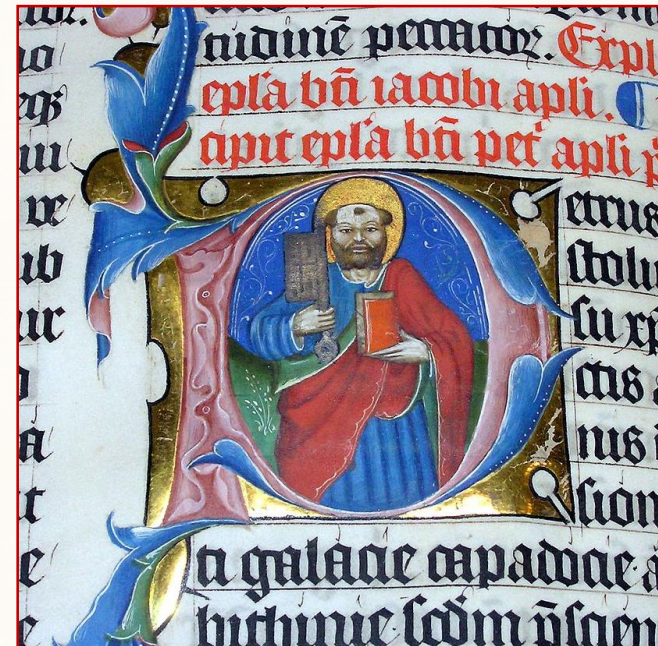 tudinē peccatoꝝ. Expl
epl'a bt̄i iacobi apli.
cipit epl'a bt̄i pet' apli p
etrus
stolu
su xp
ctis a
nus i
sion
ti galacie capadocie a
bithinie scd̄m p̄scien